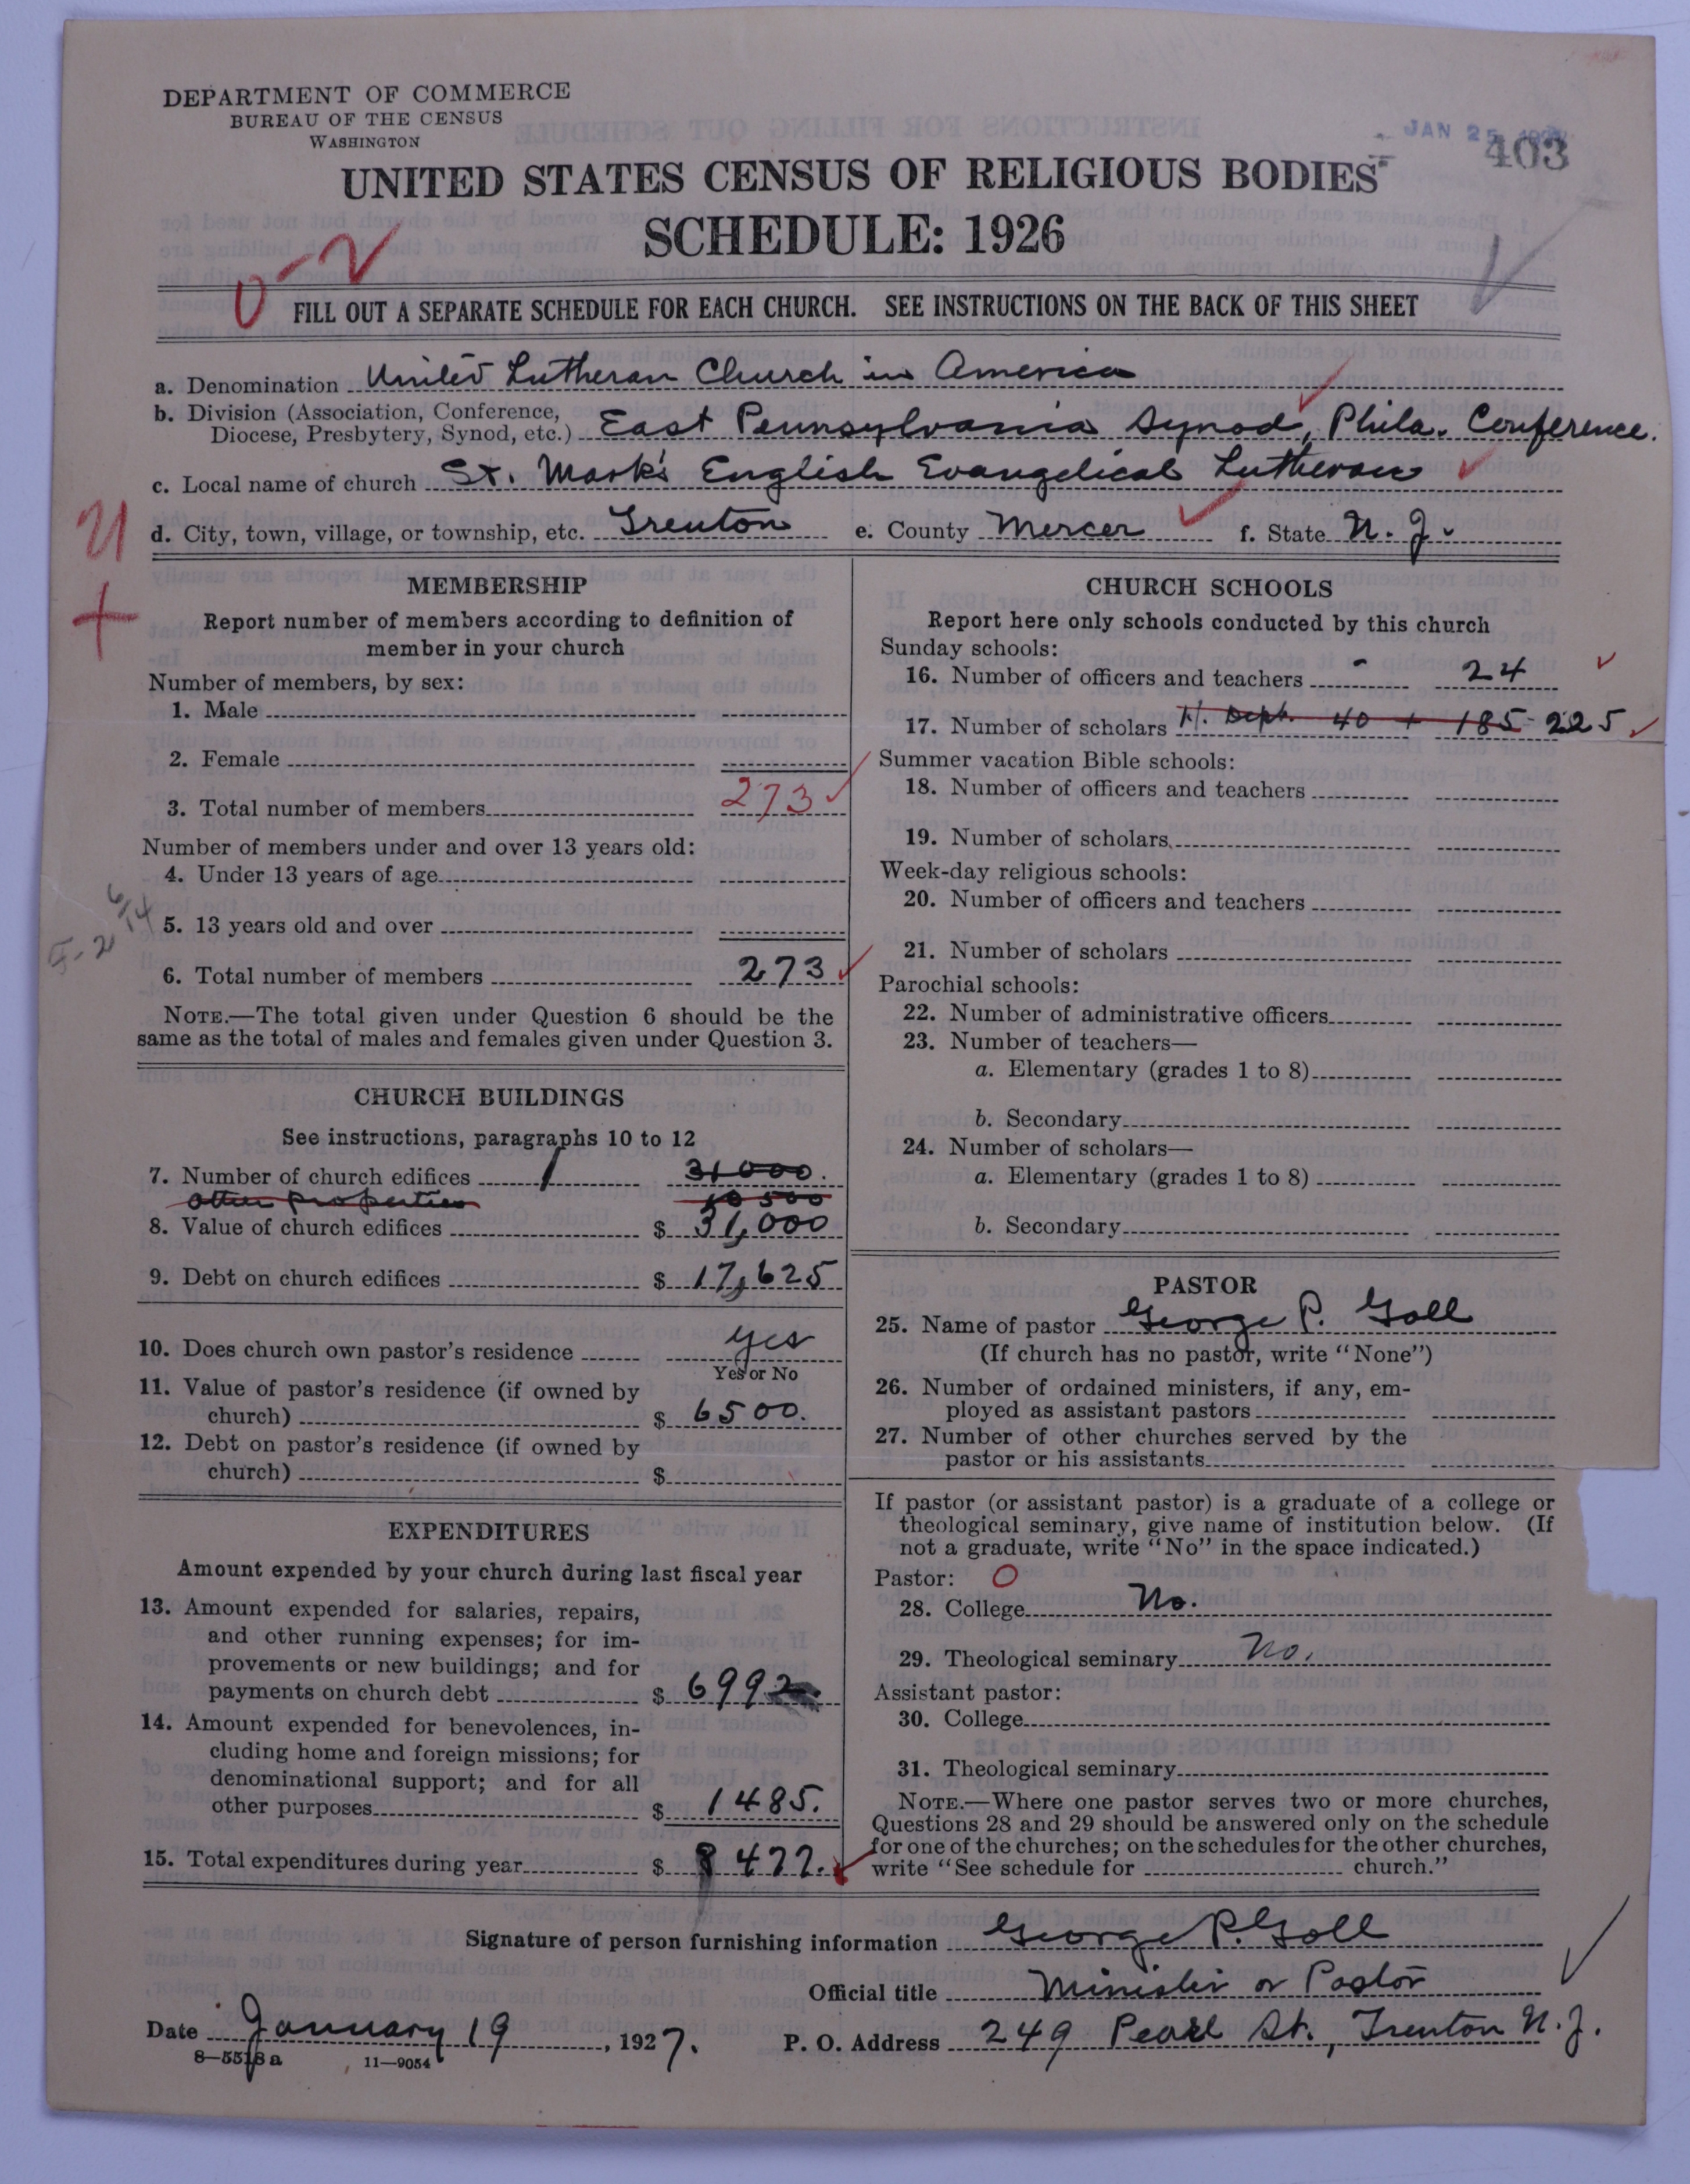 DEPARTMENT OF COMMERCE
BUREAU OF THE CENSUS
WASHINGTON
JAN 25
403
UNITED STATES CENSUS OF RELIGIOUS BODIES
SCHEDULE: 1926
FILL OUT A SEPARATE SCHEDULE FOR EACH CHURCH. SEE INSTRUCTIONS ON THE BACK OF THIS SHEET
a. Denomination United Lutheran Church in America
b. Division (Association, Conference,
Diocese, Presbytery, Synod, etc.) East Pennsylvania Synod, Phila. Conference.
c. Local name of church St. Mark's English Evangelical Lutheran
d. City, town, village, or township, etc. Trenton e. County Mercer f. State N. J.
MEMBERSHIP
Report number of members according to definition of
member in your church
Number of members, by sex:
1. Male
2. Female
3. Total number of members 273
Number of members under and over 13 years old:
4. Under 13 years of age
5. 13 years old and over
6. Total number of members 273
NOTE.—The total given under Question 6 should be the
same as the total of males and females given under Question 3.
CHURCH BUILDINGS
See instructions, paragraphs 10 to 12
7. Number of church edifices 1 31000.
other properties 10 500
8. Value of church edifices $ 31,000
9. Debt on church edifices $ 17,625
10. Does church own pastor's residence yes
Yes or No
11. Value of pastor's residence (if owned by
church) $ 6500.
12. Debt on pastor's residence (if owned by
church) $
EXPENDITURES
Amount expended by your church during last fiscal year
13. Amount expended for salaries, repairs,
and other running expenses; for im-
provements or new buildings; and for
payments on church debt $ 6992
14. Amount expended for benevolences, in-
cluding home and foreign missions; for
denominational support; and for all
other purposes $ 1485.
15. Total expenditures during year $ 8477.
CHURCH SCHOOLS
Report here only schools conducted by this church
Sunday schools:
16. Number of officers and teachers - 24
17. Number of scholars H. Dept. 40 + 185 - 225
Summer vacation Bible schools:
18. Number of officers and teachers
19. Number of scholars
Week-day religious schools:
20. Number of officers and teachers
21. Number of scholars
Parochial schools:
22. Number of administrative officers
23. Number of teachers—
a. Elementary (grades 1 to 8)
b. Secondary
24. Number of scholars—
a. Elementary (grades 1 to 8)
b. Secondary
PASTOR
25. Name of pastor George P. Goll
(If church has no pastor, write "None")
26. Number of ordained ministers, if any, em-
ployed as assistant pastors
27. Number of other churches served by the
pastor or his assistants
If pastor (or assistant pastor) is a graduate of a college or
theological seminary, give name of institution below. (If
not a graduate, write "No" in the space indicated.)
Pastor: O
28. College No.
29. Theological seminary No.
Assistant pastor:
30. College
31. Theological seminary
NOTE.—Where one pastor serves two or more churches,
Questions 28 and 29 should be answered only on the schedule
for one of the churches; on the schedules for the other churches,
write "See schedule for church."
Signature of person furnishing information George P. Goll
Official title Minister or Pastor
Date January 19, 1927. P. O. Address 249 Pearl St., Trenton N. J.
11—9054